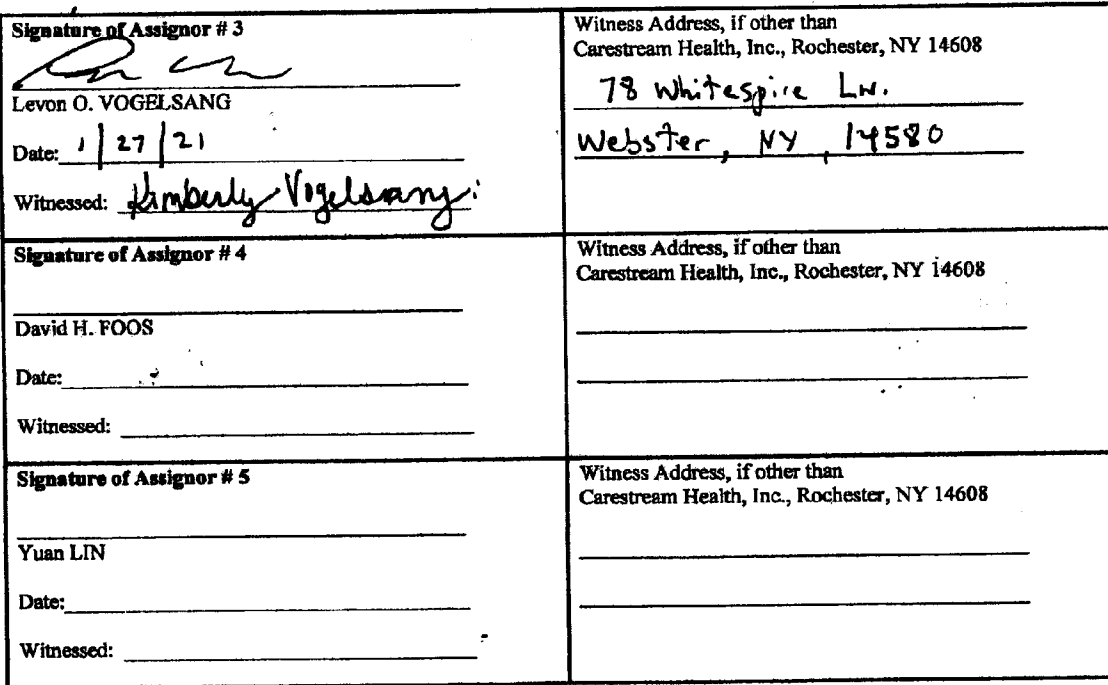 Signature of Assignor # 3
Levon O. VOGELSANG
Date: 1/27/21
Witnessed: Kimberly Vogelsang
Witness Address, if other than
Carestream Health, Inc., Rochester, NY 14608
78 Whitespire Ln.
Webster, NY, 14580
Signature of Assignor # 4
David H. FOOS
Date:
Witnessed:
Witness Address, if other than
Carestream Health, Inc., Rochester, NY 14608
Signature of Assignor # 5
Yuan LIN
Date:
Witnessed:
Witness Address, if other than
Carestream Health, Inc., Rochester, NY 14608